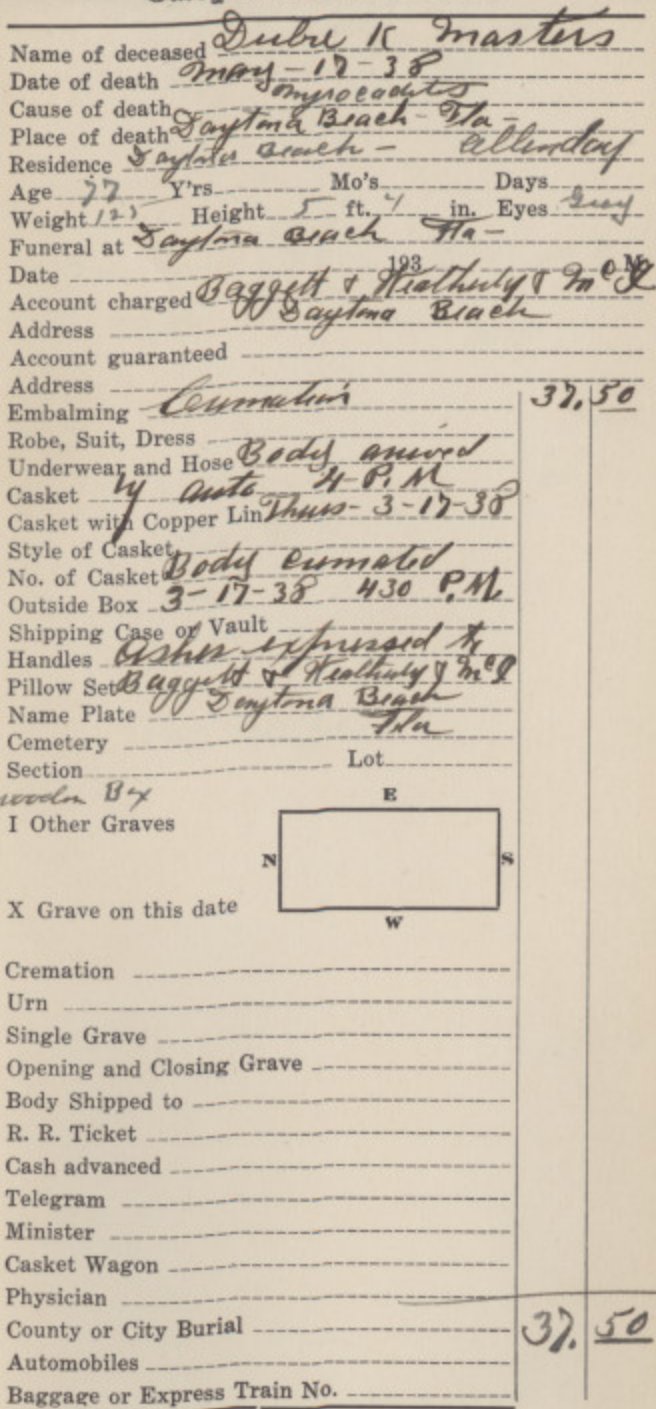 Name of deceased Dubre K Masters
Date of death May-17-38
Cause of death myrocadits
Place of death Daytona Beach - Fla -
Residence Daytona Beach -
Age 77 Y'rs Mo's Days
Weight Height 5 ft. 4 in. Eyes Gray
Funeral at Daytona Beach Fla -
Date 193
Account charged Baggett & Weatherly & McI
Daytona Beach
Address
Account guaranteed
Address
Embalming Cremation 37.50
Robe, Suit, Dress
Underwear and Hose Body arrived
Casket by auto 4 P.M
Casket with Copper Lin Thurs - 3-17-38
Style of Casket
No. of Casket Body cremated
Outside Box 3-17-38 430 P.M.
Shipping Case or Vault
Handles Ashes expressed to
Pillow Set Baggett & Weatherly & McI
Name Plate Daytona Beach
Fla
Cemetery
Section Lot
wooden Box
E
I Other Graves
N S
X Grave on this date
W
Cremation
Urn
Single Grave
Opening and Closing Grave
Body Shipped to
R. R. Ticket
Cash advanced
Telegram
Minister
Casket Wagon
Physician
County or City Burial 37.50
Automobiles
Baggage or Express Train No.